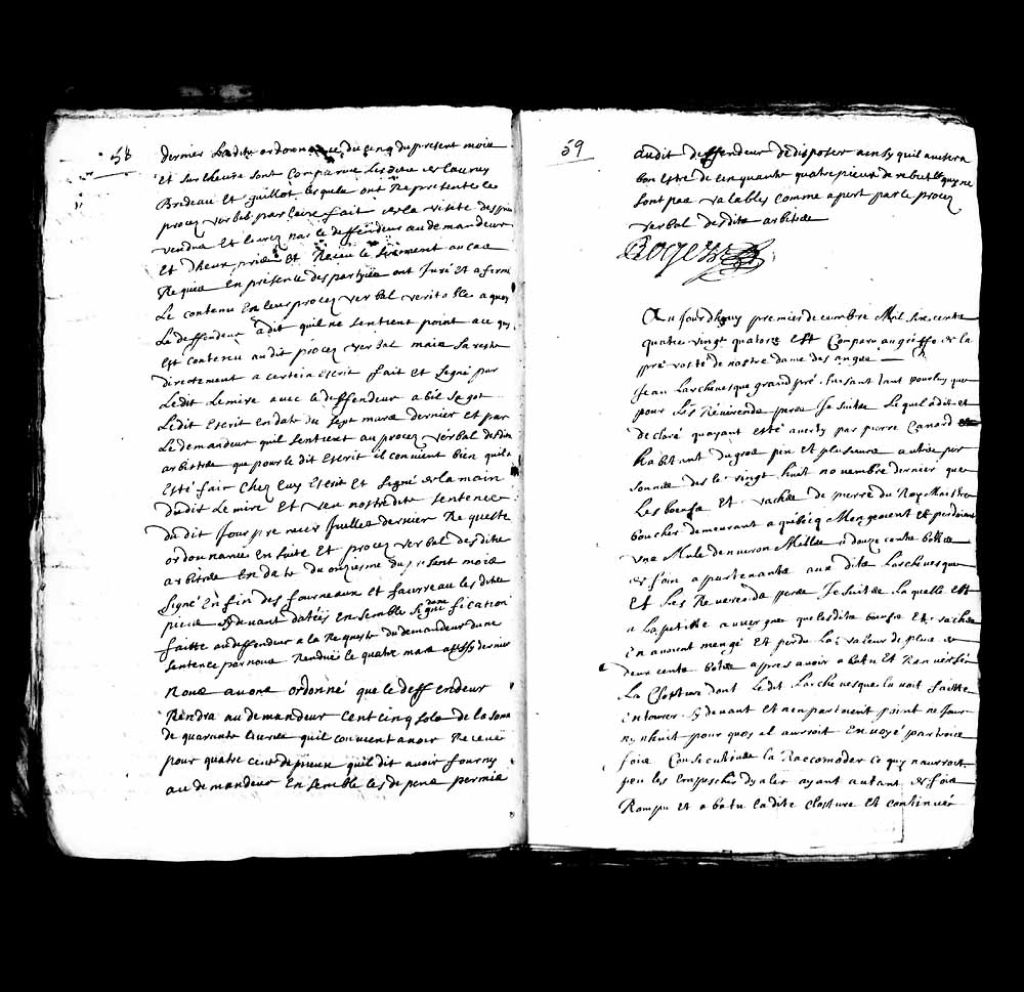 58
dernier Ladite ordonnance du cinq du present mois
Et sur lheure sont Comparus Les dits de Launay
Bredeau et guillot lesquels ont Represente le
procez verbal par Eux fait de la visite des pieux
vendus et livrez par le deffendeur au demandeur
Et dheux pris et Receu le serment au cas
Requis en presence des partyes ont Juré et afermé
Le contenu en leur procez verbal veritable a quoy
Le deffendeur a dit quil ne sentient point au quy
est contenu audit procez verbal mais sareste
directement a certain Escrit fait et signé par
Ledit Lemire avec le deffendeur
Ledit Escrit en date du sept mars dernier et par
Le demandeur quil sentient au procez verbal desdits
arbitres que pour le dit Escrit il convient bien quil a
Esté fait Chez luy Escrit et signé de la main
dudit Lemire Et veu nostredite sentence
du dit Jour premier Juillet dernier Requeste
ordonnance en suite Et procez verbal desdits
arbitres en date du onziesme du present mois
signé En fin des fourneaux et faureau les dites
pieces Cy devant datées Ensemble signification
faitte au deffendeur a la Requeste du demandeur dune
sentence par nous Rendue le quatre mars aussy dernier
Nous avons ordonné que le deffendeur
Rendra au demandeur Cent cinq sols de la somme
de quarante livres quil convient avoir Receue
pour quatre cens de pieux quil dit avoir fourny
au demandeur Ensemble les depens permis
59
audit deffendeur de disposer ainsy quil avisera
bon estre de cinquante quatre pieux de rebut quy ne
sont pas valables comme apert par le procez
verbal desdits arbitres
Au Jourdhuy premier decembre Mil six cents
quatre vingt quatorze est Comparu au greffe de la
prevosté de nostre dame des anges
Jean Larchevesque grand pré faisant tant pour luy que
pour Les Reverends peres Jesuites Lequel a dit et
declaré quayant esté averty par pierre Canard
habitant du gros pin et plusieurs autres per
sonnes des le vingt huit novembre dernier que
Les boeufs et vaches de pierre du Roy Maistre
boucher demeurant a québecq Mangeoient et perdoient
une Mule denviron Mille a douze cents bottes
de foin apartenante aux dits Larchevesque
Et Les Reverends peres Jesuites Laquelle est
a Lapetitte auvergne que lesdits boeufs et vaches
En avoient mengé et perdu La valeur de plus de
deux cents bottes apres avoir abatu et Ranversé
La Closture dont Ledit Larchevesque lavoit faitte
Entourer Cy devant et nen partirent point ne Jour
ny nhuit pour quoy il auroit Envoyé par trois
fois Consecutives la Raccomoder ce quy nauroit
peu les Empescher dy aler ayant autant de fois
Rompu et abatu ladite closture et continué